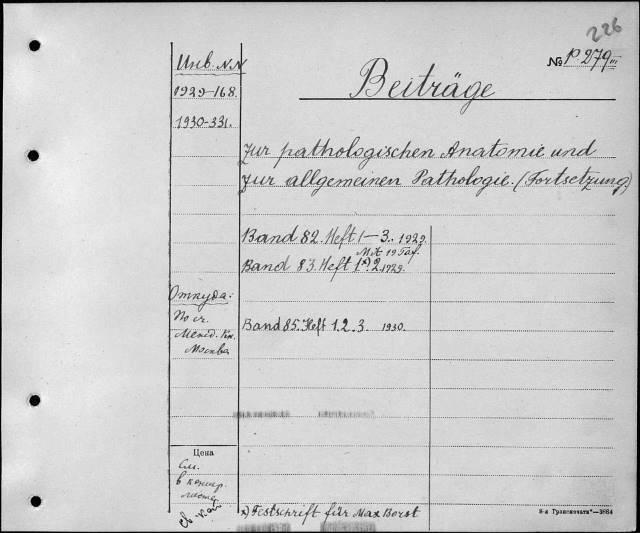 226
№ P. 279 III
Инв. N.N
1929-168.
1930-331.
Beiträge
zur pathologischen Anatomie und
zur allgemeinen Pathologie. (Fortsetzung)
Band 82. Heft 1-3. 1929.
Mit 19 Taf.
Band 83. Heft 1 2. 1929.
Откуда:
По сч.
Межд. Кн.
Москва
Band 85. Heft 1. 2. 3. 1930.
Цена
См.
в
x) Festschrift für Max Borst
8-я Транспечать—3864